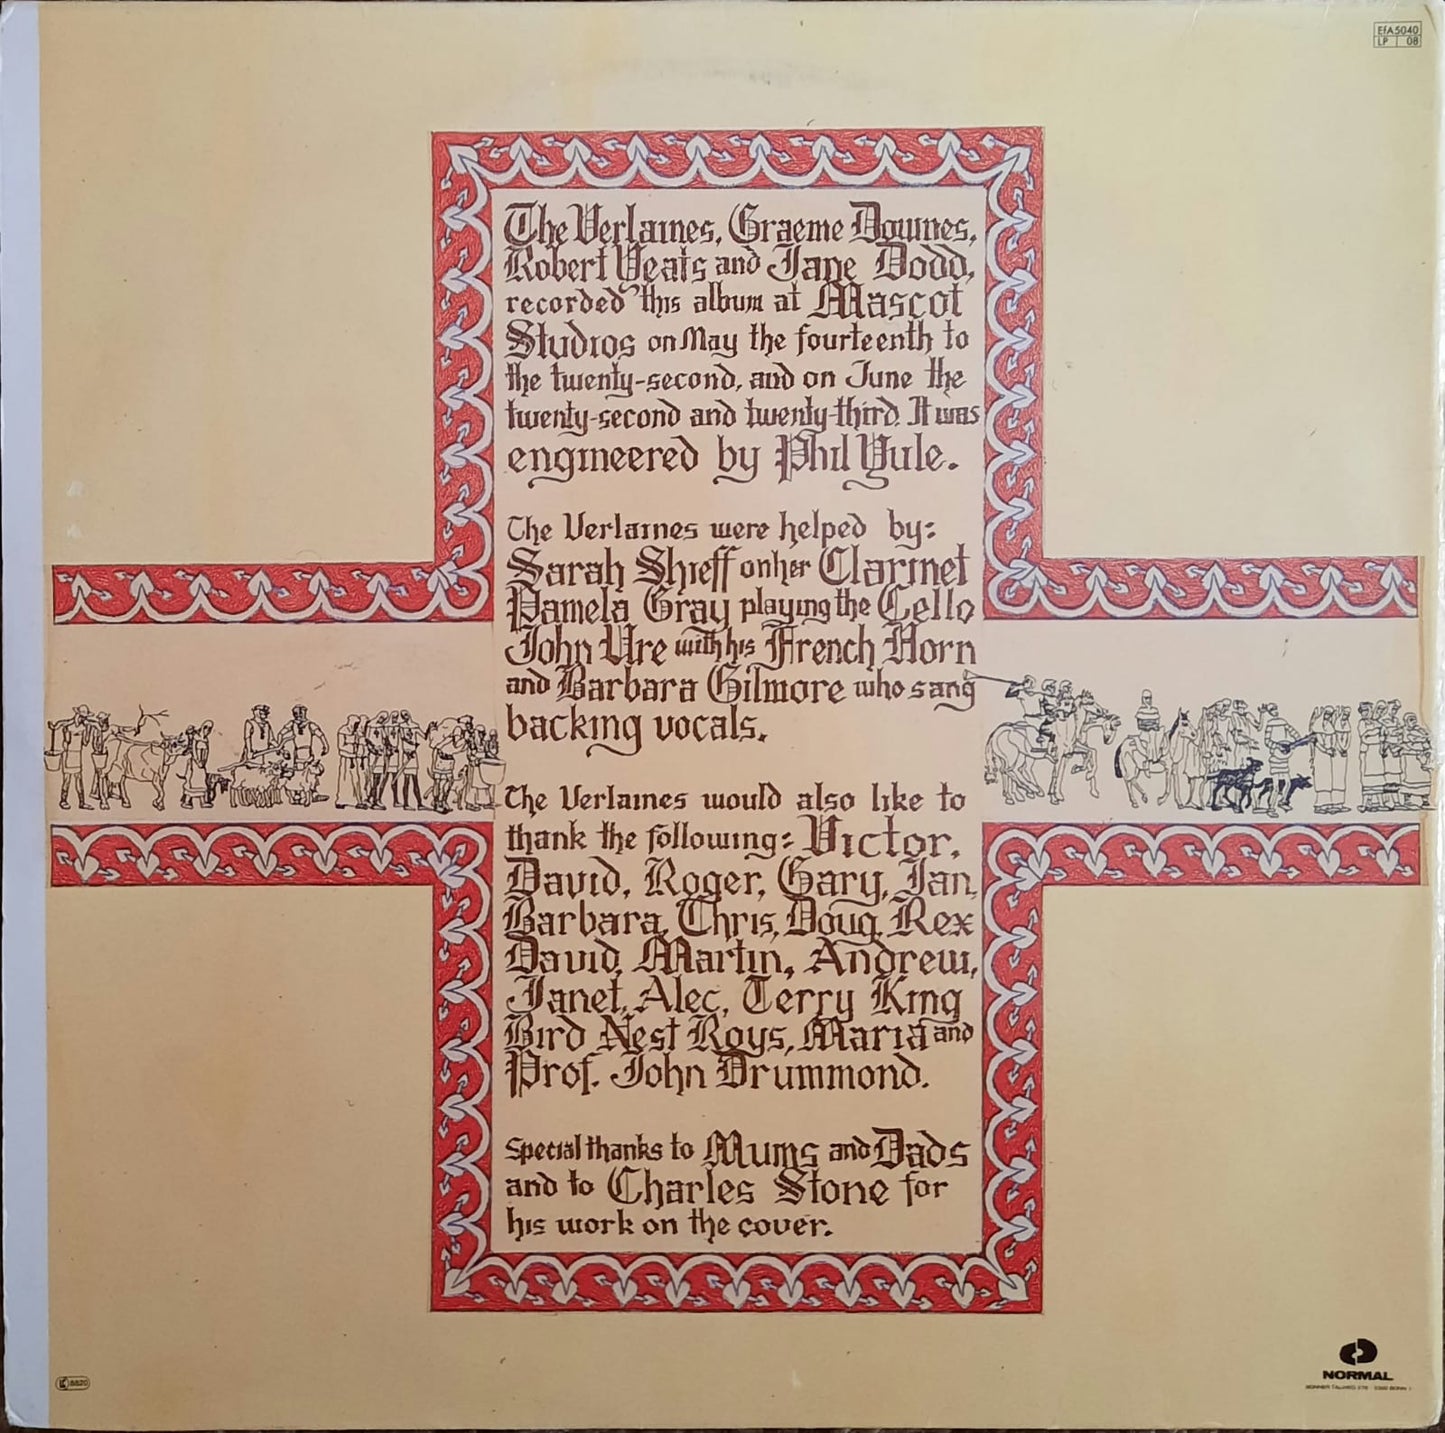 EfA5040
LP 08
The Verlaines, Graeme Downes,
Robert Yeats and Jane Dodd,
recorded this album at Mascot
Studios on May the fourteenth to
the twenty-second, and on June the
twenty-second and twenty-third. It was
engineered by Phil Yule.
The Verlaines were helped by:
Sarah Shieff on her Clarinet
Pamela Gray playing the Cello
John Ure with his French Horn
and Barbara Gilmore who sang
backing vocals.
The Verlaines would also like to
thank the following: Victor,
David, Roger, Gary, Ian,
Barbara, Chris, Doug, Rex
David, Martin, Andrew,
Janet, Alec, Terry King
Bird Nest Roys, Maria and
Prof. John Drummond.
Special thanks to Mums and Dads
and to Charles Stone for
his work on the cover.
8820
NORMAL